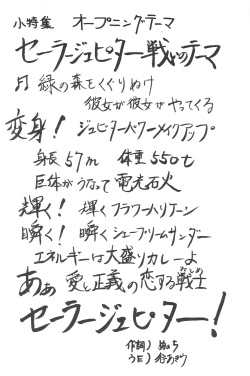 小特集 オープニング・テーマ
セーラージュピター戦いのテーマ
♫ 緑の森をくぐりぬけ
彼女が彼女がやってくる
変身! ジュピターパワーメイクアップ
身長57m 体重550t
巨体がうなって電光石火
輝く! 輝くフラワーハリケーン
瞬く! 瞬くシュープリームサンダー
エネルギーは大盛りカレーよ
あぁ 愛と正義の恋する戦士
セーラージュピター!
作詞)
うた)